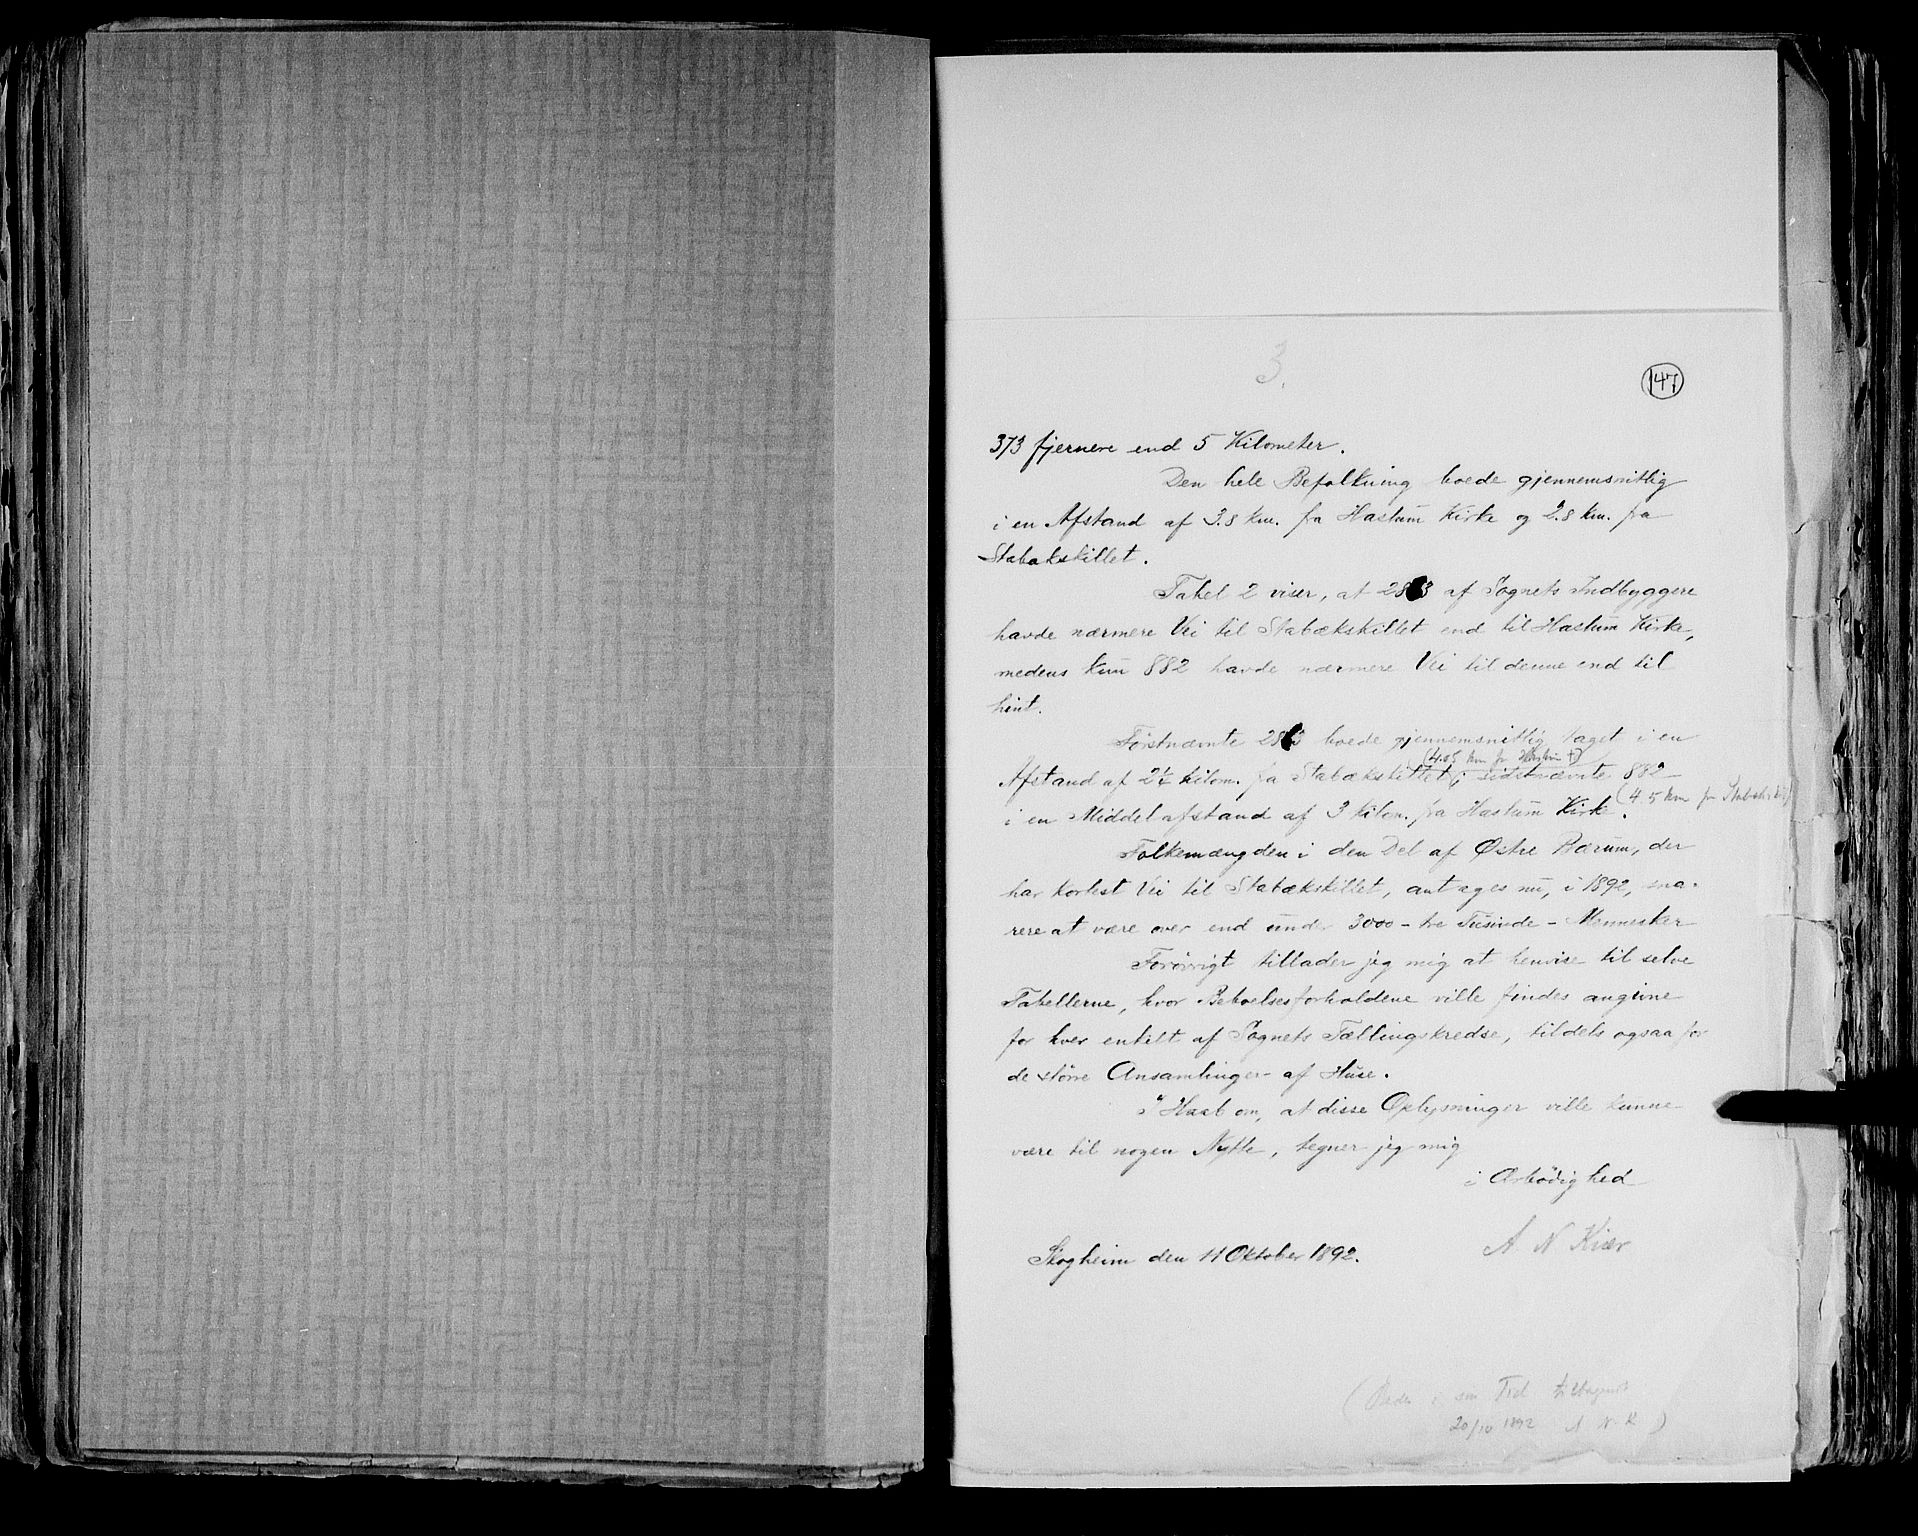 3.
147
373 fjernere end 5 Kilometer.
Den hele Befolkning boede gjennemsnitlig
i en Afstand af 3.8 km. fra Haslum Kirke og 2.8 km. fra
Stabækskillet.
Tabel 2 viser, at 28 3 af Sognets Indbyggere
havde nærmere Vei til Stabækskillet end til Haslum Kirke,
medens kun 882 havde nærmere Vei til denne end til
hint.
Førstnævnte 28 3 boede gjennemsnitlig taget i en
(4.05 km fra Haslum K)
Afstand af 2¼ kilom. fra Stabækskillet; sidstnævnte 882
(4.5 km fra Stabæksk)
i en Middelafstand af 3 kilom. fra Haslum Kirke.
Folkemængden i den Del af Østre Bærum, der
har kortest Vei til Stabækskillet, antages nu, i 1892, sna-
rere at være over end under 3000 - tre Tusinde - Mennesker
Forøvrigt tillader jeg mig at henvise til selve
Tabellerne, hvor Beboelsesforholdene ville findes angivne
for hver enkelt af Sognets Tællingskredse, tildels ogsaa for
de større Ansamlinger af Huse.
I Haab om, at disse Oplysninger ville kunne
være til nogen Nytte, tegner jeg mig
i Ærbødighed
A N Kiær
Skogheim den 11 Oktober 1892.
( i sin Tid
20/10 1892 A N K )